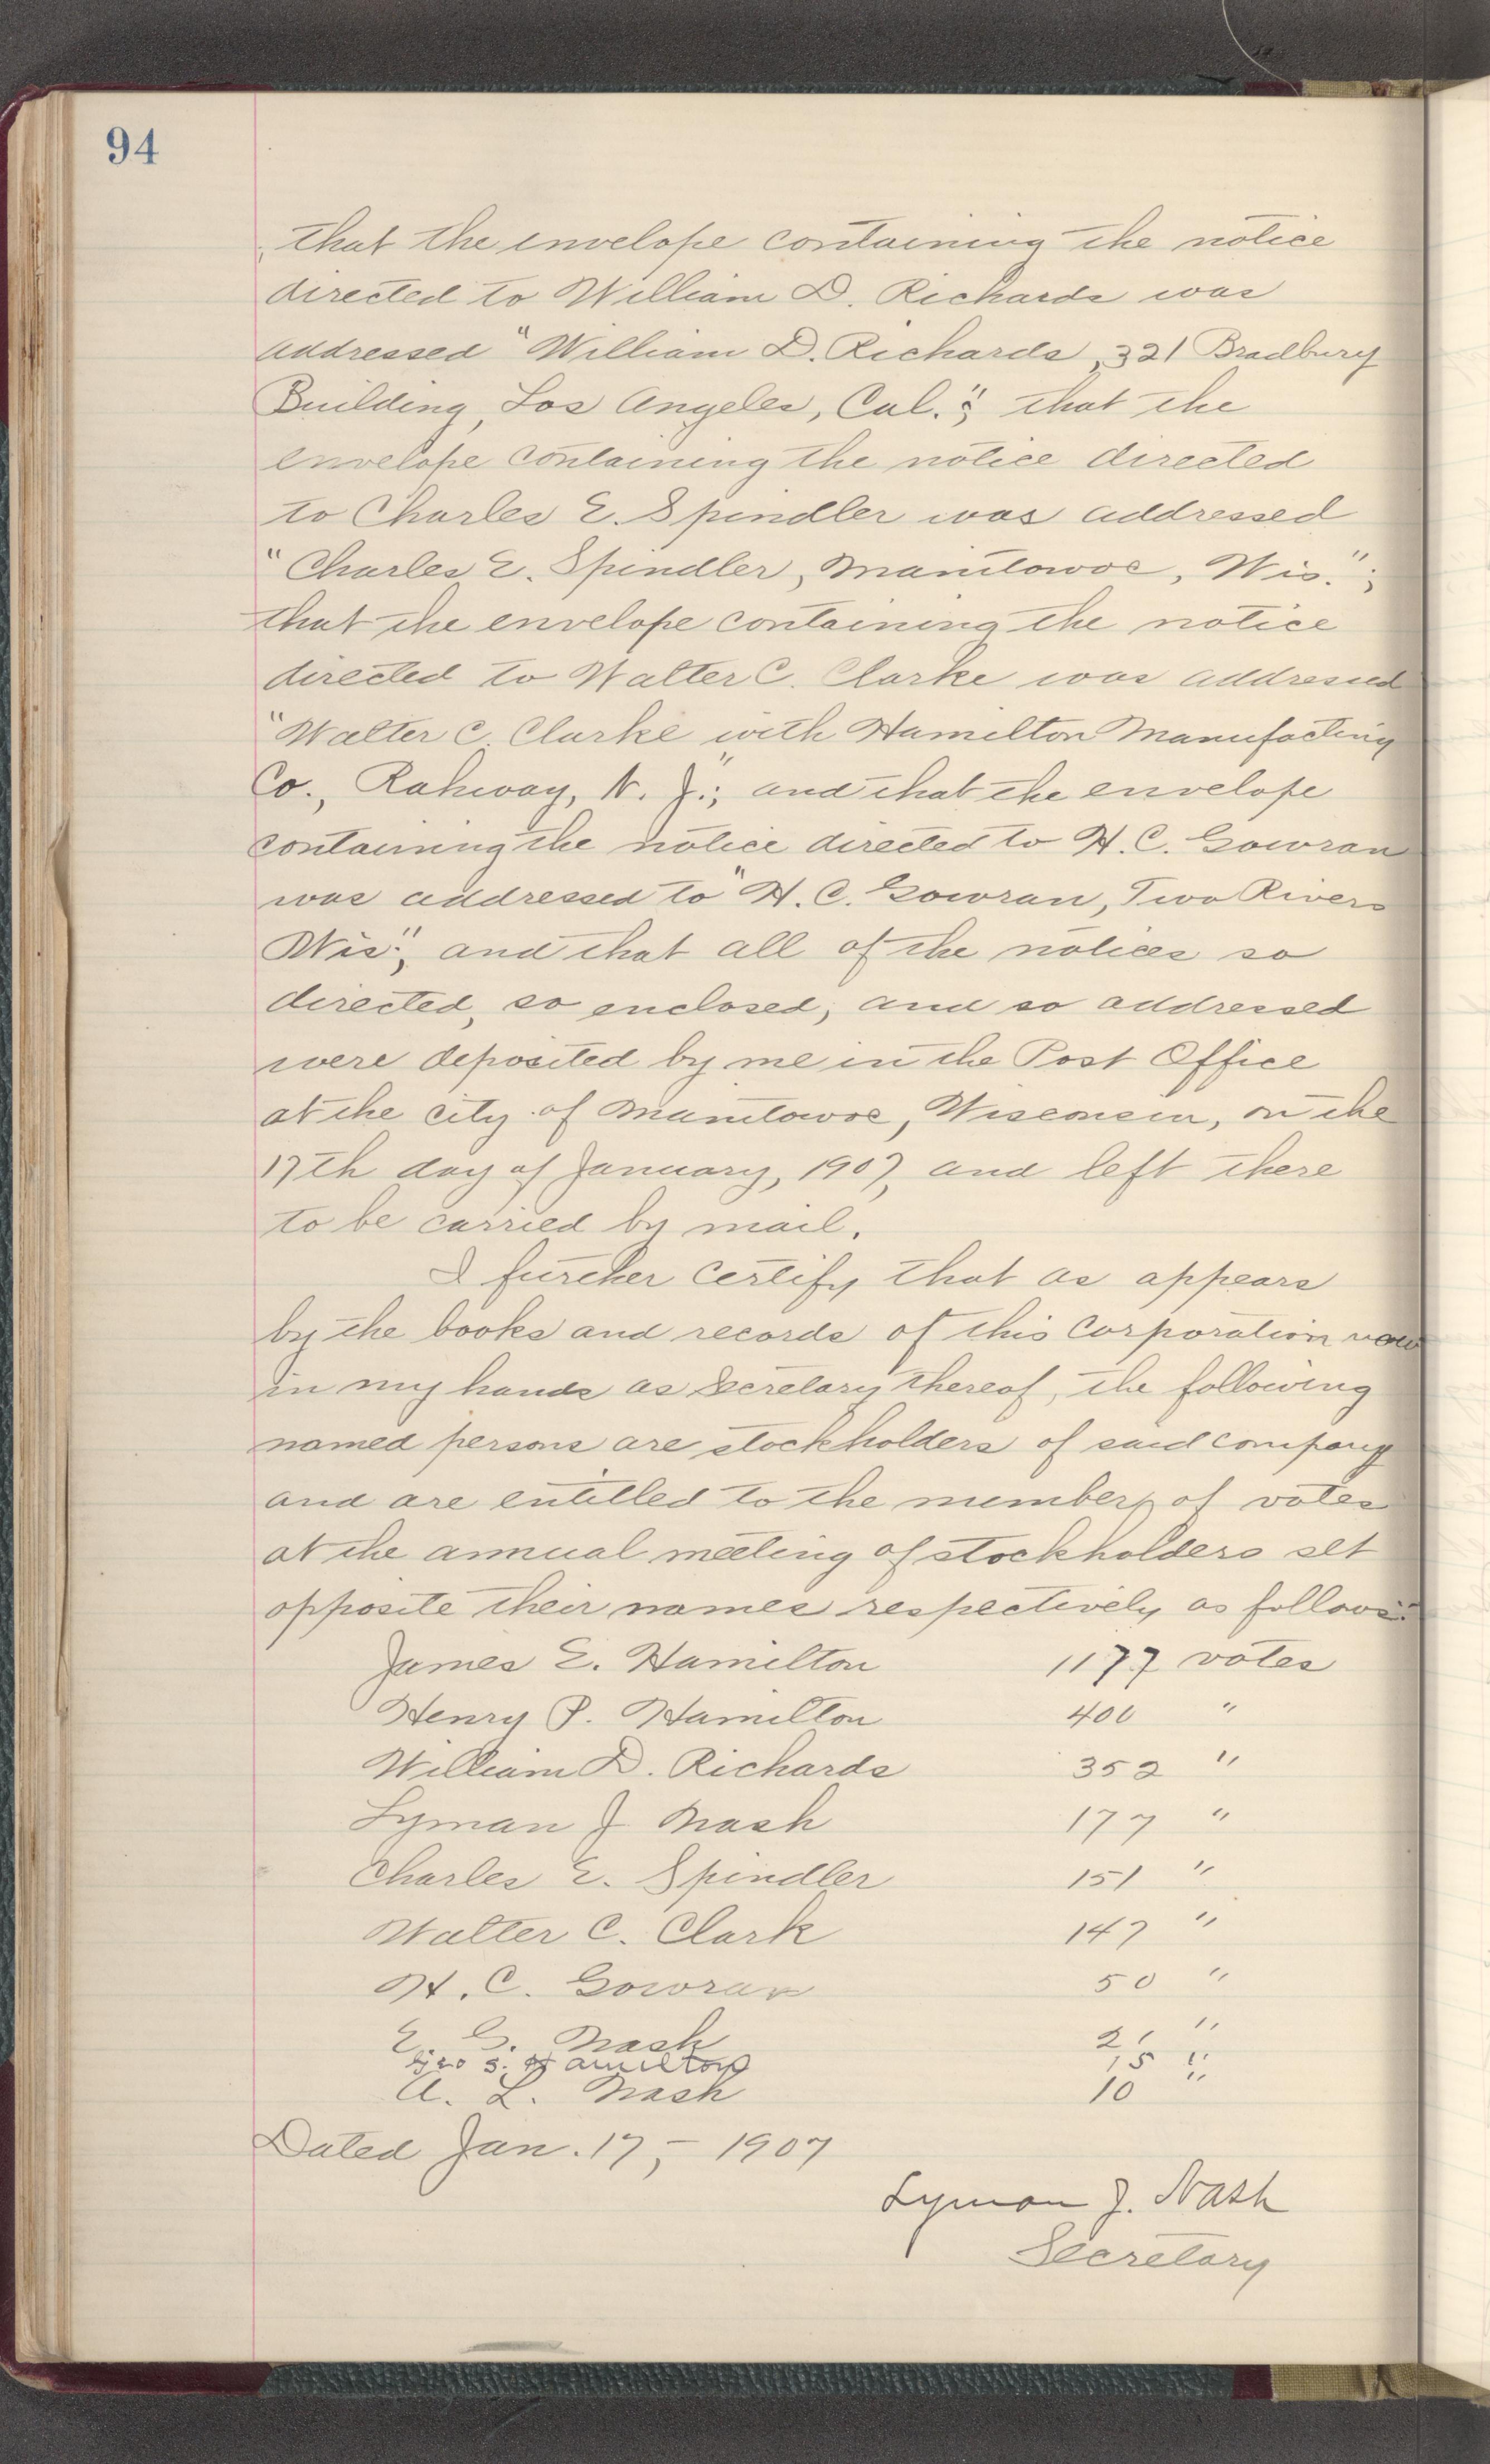 94
that the envelope containing the notice
directed to William D. Richards was
addressed "William D. Richards, 321 Bradbury
Building, Los Angeles, Cal."; that the
envelope containing the notice directed
to Charles E. Spindler was addressed
"Charles E. Spindler, Manitowoc, Wis.";
that the envelope containing the notice
directed to Walter C. Clarke was addressed
"Walter C. Clarke with Hamilton Manufacting
Co., Rahway, N. J."; and that the envelope
containing the notice directed to H. C. Gowran
was addressed to "H. C. Gowran, Two Rivers
Wis"; and that all of the notices so
directed, so enclosed, and so addressed
were deposited by me in the Post Office
at the city of Manitowoc, Wisconsin, on the
17th day of January, 1907, and left there
to be carried by mail.
I further certify that as appears
by the books and records of this Corporation now
in my hands as Secretary thereof, the following
named persons are stockholders of said company
and are entitled to the number of votes
at the annual meeting of stockholders set
opposite their names respectively as follows:
James E. Hamilton 1177 votes
Henry P. Hamilton 400 "
William D. Richards 352 "
Lyman J Nash 177 "
Charles E. Spindler 151 "
Walter C. Clark 147 "
H. C. Gowran 50 "
E. G. Nash "
Geo S. Hamilton 15 "
A. L. Nash 10 "
Dated Jan. 17, - 1907
Lyman J. Nash
Secretary